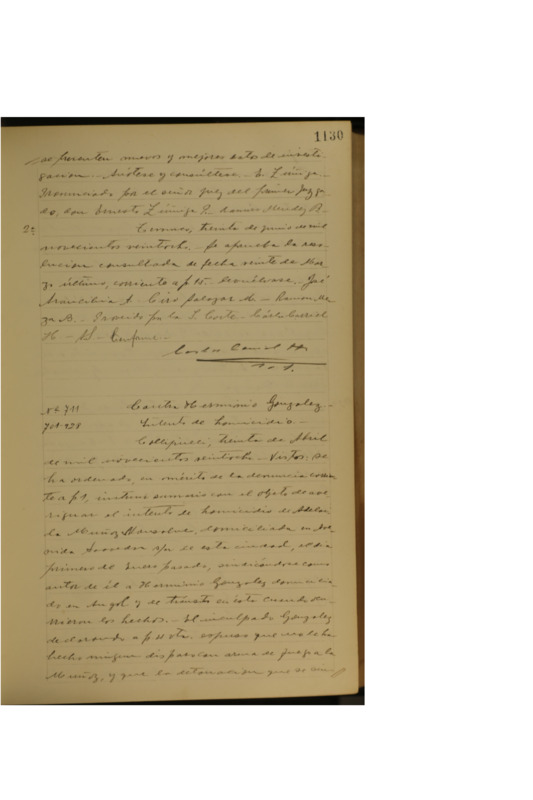 1130
se presenten nuevos y mejores datos de investi-
gacion. Anótese y consúltese. E. Zúñiga.
Pronunciada por el señor Juez del primer Juzga-
do, don Ernesto Zúñiga
2a
Temuco, treinta de junio de mil
novecientos veintiocho. Se aprueba la reso-
lucion consultada de fecha veinte de Mar-
zo último, corriente a f 15. Devuélvase. José
Arancibia A. Ciro Salazar M. Ramon Me-
za B. Proveido por la I. Corte. Carlos
H. Conforme.
Nº 711
Contra Herminio Gonzalez
Intento de homicidio.
Collipulli, treinta de Abril
de mil novecientos veintiocho. Vistos: Se
ha ordenado, en mérito de la denuncia corrien-
te a f 1, instruir sumario con el objeto de ave-
riguar el intento de homicidio de
la Muñoz, domiciliada en Ave-
nida Saavedra s/n de esta ciudad, el dia
primero de Enero pasado, sindicándose como
autor de él a Herminio Gonzalez domicilia-
do en Angol y de tránsito en ésta cuando ocu-
rrieron los hechos. El inculpado Gonzalez
declarando a f 11 vta. expresa que no le ha
hecho ningun disparo con arma de fuego a la
Muñoz, y que la detonacion que se sin-